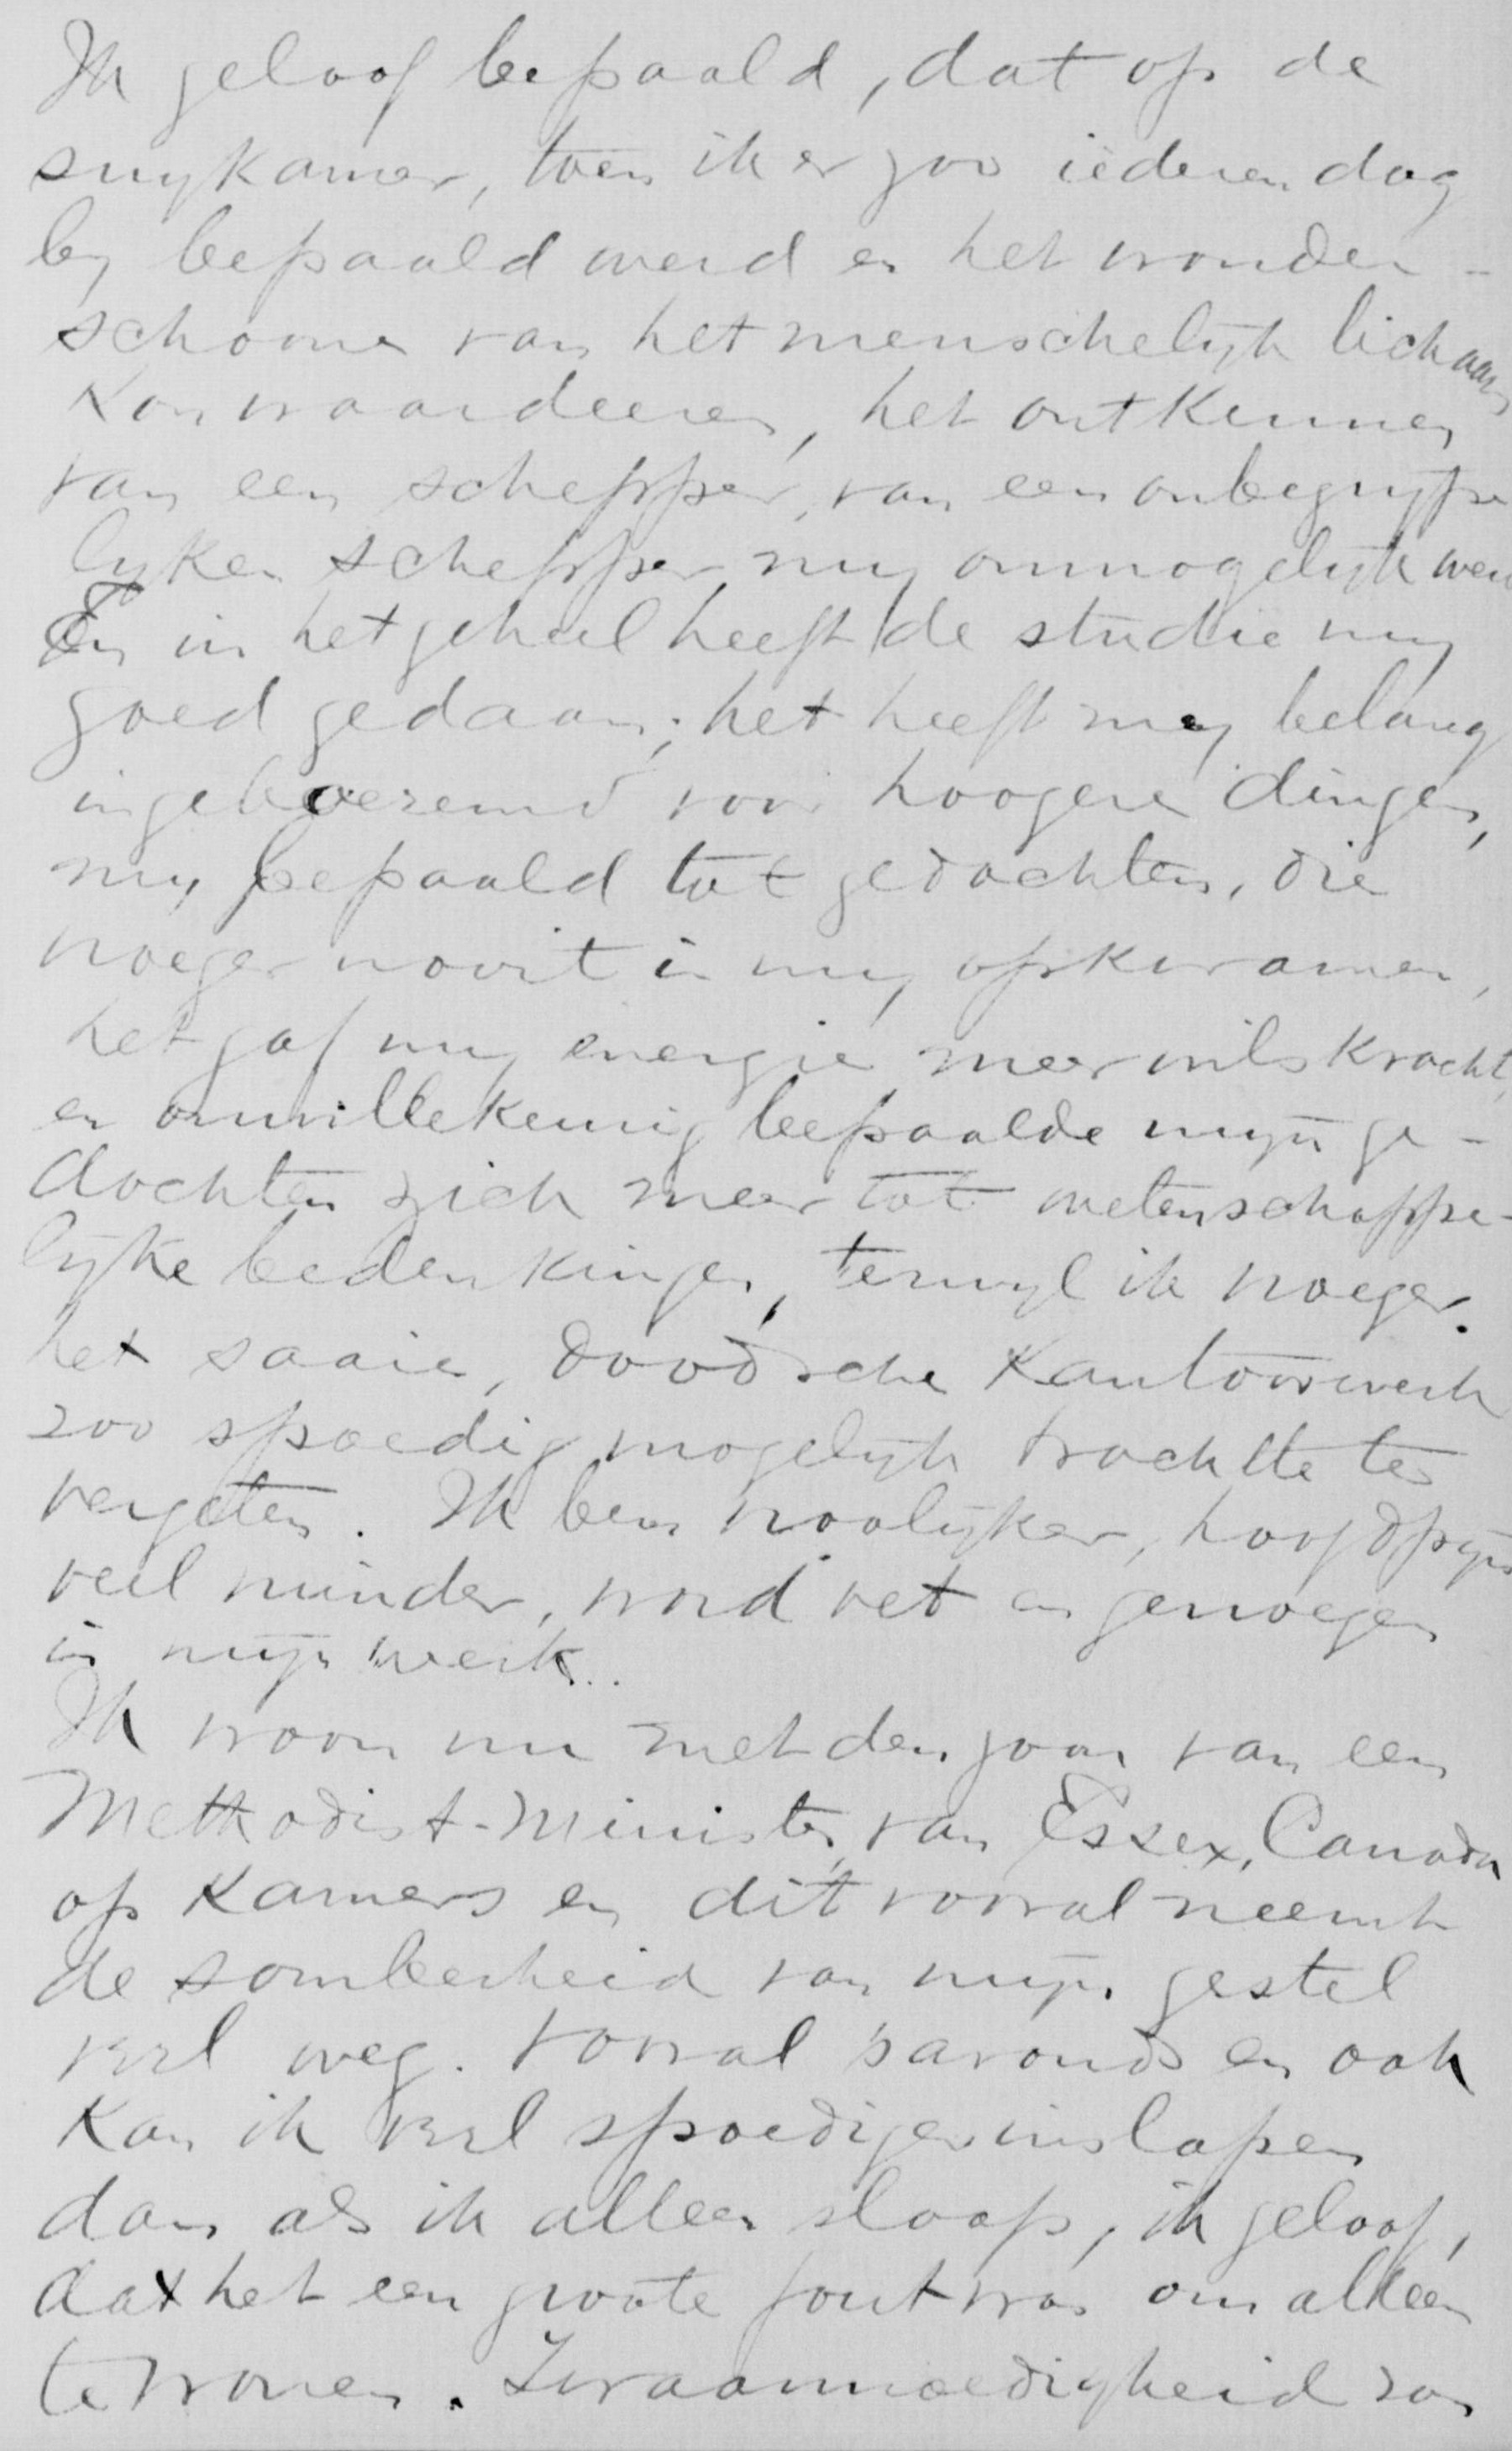 Ik geloof bepaald, dat op de
snykamer, toen ik er zoo iederen dag
by bepaald werd en het wonder-
schoone van het menschelijk lichaam
kon waardeeren, het ontkennen
van een schepper, van een onbegrijpe
lyken schepper my onmogelijk werd
En in het geheel heeft de studie my
goed gedaan; het heeft my belang
ingeboezemd voor hoogere dingen,
my bepaald tot gedachten, die
vroeger nooit in my opkwamen,
het gaf my energie meer wilskracht,
en onwillekeurig bepaalde mijn ge-
dachten zich meer tot wetenschappe-
lijke bedenkingen, terwyl ik vroeger
het saaie, doodsche kantoorwerk
zoo spoedig mogelijk trachtte te
vergeten. Ik ben vroolijker, hoofdpijn
veel minder, word vet en genoegen
in mijn werk..
Ik woon nu met den zoon van een
Methodist-Minister van Essex, Canada
op kamers en dit vooral neemt
de somberheid van mijn gestel
veel weg. Vooral 's avonds en ook
kan ik veel spoediger inslapen
dan als ik alleen slaap, ik geloof,
dat het een groote fout was om alleen
te wonen. Zwaarmoedigheid zou